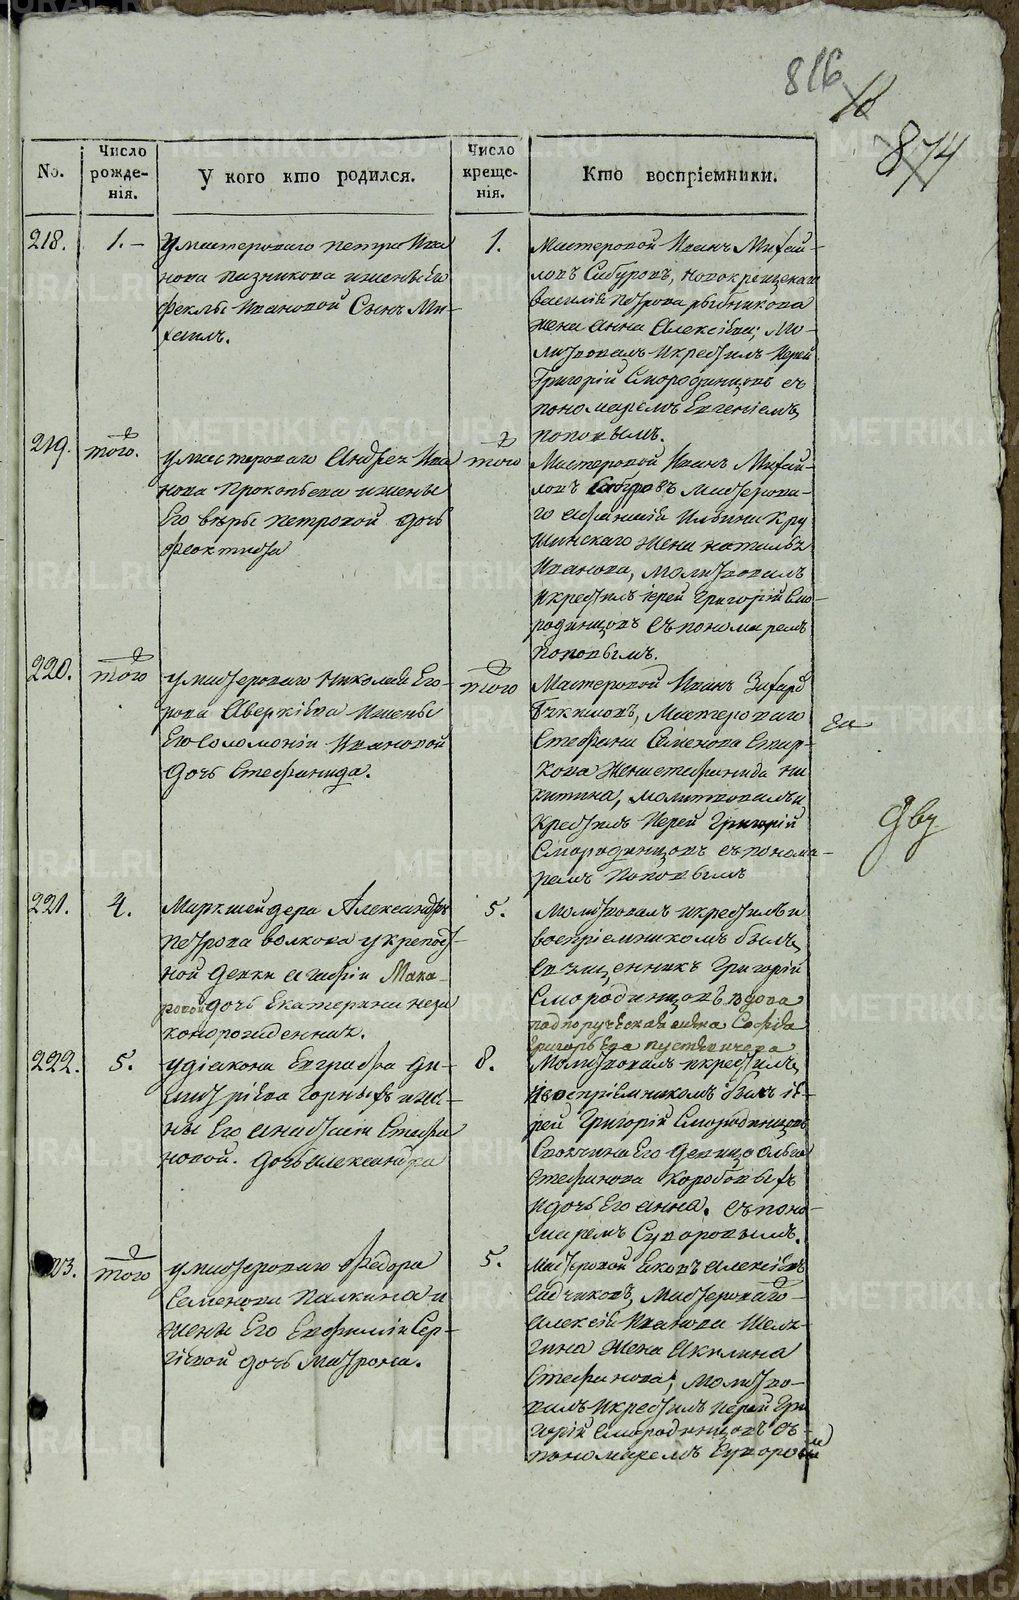 816
874
No.
Число рожде-
нія.
У кого кто родился.
Число креще-
нія.
Кто воспріемники.
218.
1.
У мастероваго Петра Ива
нова Пазникова и жены Ег
Феклы Ивановой Сынъ Ми-
хаилъ.
1.
Мастеровой Иванъ Михай-
ловъ Сабуровъ, новокрещенаго
Василія Петрова Рыбникова
жена Анна Алексіева; Мо-
литвовалъ и крестилъ Іерей
Григорій Смородинцовъ съ
пономаремъ Евгеніемъ
Поповымъ.
219.
того.
У мастероваго Андрея Ива
нова Прокопьева и жены
Его Веры Петровой дочь
Феоктиста
того
Мастеровой Иванъ Михай-
ловъ Сабуровъ Мастерова-
го Афанасія Ильина Кру
шинскаго жена Наталья
Иванова, молитвовалъ
и крестилъ іерей Григорій Смо-
родинцовъ съ пономаремъ
Поповымъ.
220.
того
У мастероваго Николая Его-
рова Аверкіева и жены
Его Соломоніи Ивановой
дочь Стефанида.
того
Мастеровой Иванъ Захаро
Мастероваго
Стефана Семенова
жена Стефанида Ни
китина, молитвовалъ и
крестилъ Іерей Григорій
Смородинцовъ съ понома-
ремъ Поповымъ
дву
221.
4.
Маркшейдера Александра
Петрова Волкова у крепост-
ной девки Агафіи Мака-
ровой дочь Екатерина неза
коннорожденная.
5.
Молитвовалъ и крестилъ и
воспріемникомъ былъ
Священникъ Григорій
Смородинцовъ вдова
Софья
Григорьева
222.
5.
У діакона Евграфа Ди-
митріева Горныхъ и же-
ны Его Анастасіи Стефа
новой. дочь Александра
8.
Молитвовалъ и крестилъ
и воспріемникомъ былъ іе-
рей Григорій Смородинцовъ
Своячина Его девица Ольга
Стефанова Коробовыхъ
и дочь Его Анна. съ поно-
маремъ Суворовымъ.
223.
того
У мастероваго Федора
Семенова Палкина и
жены Его Евфиміи Сер-
гіевой дочь Матрона.
5.
Мастеровой Яковъ Алексіевъ
Садчиковъ, Мастероваго
Алексія Иванова Шелы-
гина жена Акилина
Стефанова; Молитво-
валъ и крестилъ іерей Гри
горій Смородинцовъ съ
пономаремъ Суворовы